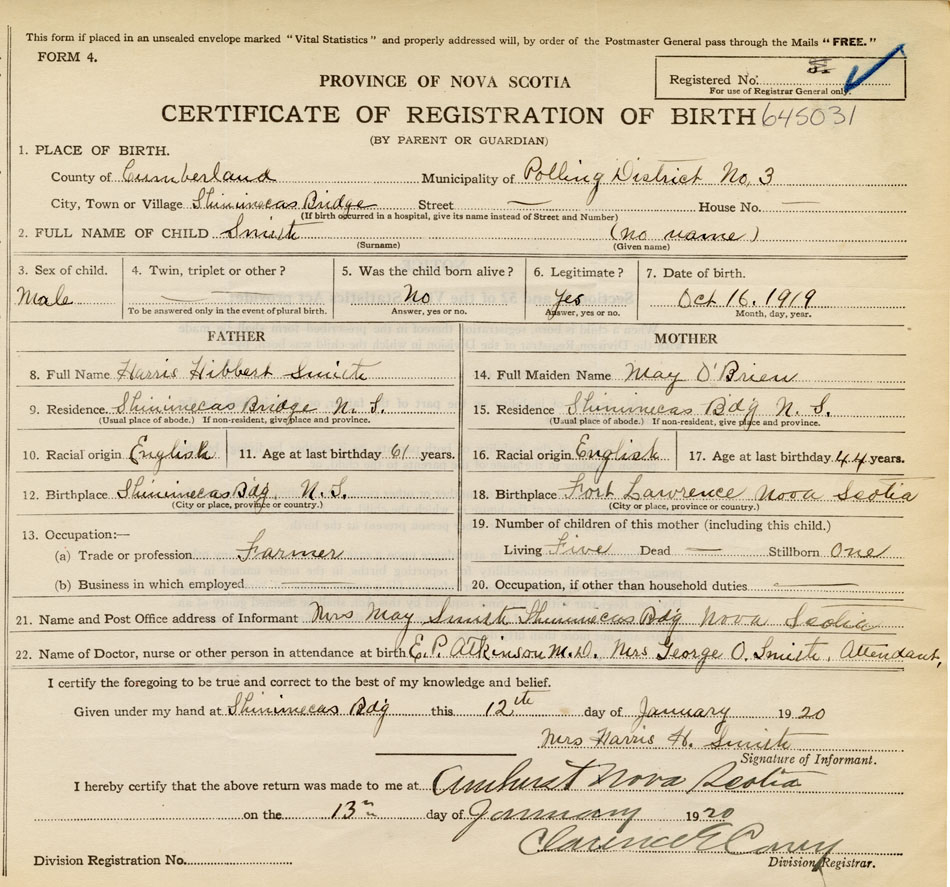 This form if placed in an unsealed envelope marked "Vital Statistics" and properly addressed will, by order of the Postmaster General pass through the Mails "FREE."
FORM 4.
PROVINCE OF NOVA SCOTIA
Registered No.
For use of Registrar General only.
CERTIFICATE OF REGISTRATION OF BIRTH 645031
(BY PARENT OR GUARDIAN)
1. PLACE OF BIRTH.
County of Cumberland Municipality of Polling District No. 3
City, Town or Village Shinimecas Bridge Street — House No. —
(If birth occurred in a hospital, give its name instead of Street and Number)
2. FULL NAME OF CHILD Smith (no name)
(Surname) (Given name)
3. Sex of child. 4. Twin, triplet or other? 5. Was the child born alive? 6. Legitimate? 7. Date of birth.
Male — No Yes Oct 16. 1919
To be answered only in the event of plural birth. Answer, yes or no. Answer, yes or no. Month, day, year.
FATHER MOTHER
8. Full Name Harris Hibbert Smith 14. Full Maiden Name May O'Brien
9. Residence Shinimecas Bridge N. S. 15. Residence Shinimecas Bdg N. S.
(Usual place of abode.) If non-resident, give place and province. (Usual place of abode.) If non-resident, give place and province.
10. Racial origin English 11. Age at last birthday 61 years. 16. Racial origin English 17. Age at last birthday 44 years.
12. Birthplace Shinimecas Bdg, N. S. 18. Birthplace Fort Lawrence Nova Scotia
(City or place, province or country.) (City or place, province or country.)
13. Occupation:— 19. Number of children of this mother (including this child.)
(a) Trade or profession Farmer Living Five Dead — Stillborn One
(b) Business in which employed — 20. Occupation, if other than household duties —
21. Name and Post Office address of Informant Mrs May Smith Shinimecas Bdg Nova Scotia
22. Name of Doctor, nurse or other person in attendance at birth E. P. Atkinson M. D. Mrs George O. Smith, Attendant,
I certify the foregoing to be true and correct to the best of my knowledge and belief.
Given under my hand at Shinimecas Bdg this 12th day of January 1920
Mrs Harris H. Smith
Signature of Informant.
I hereby certify that the above return was made to me at Amherst Nova Scotia
on the 13th day of January 1920
Clarence E Casey
Division Registrar.
Division Registration No.